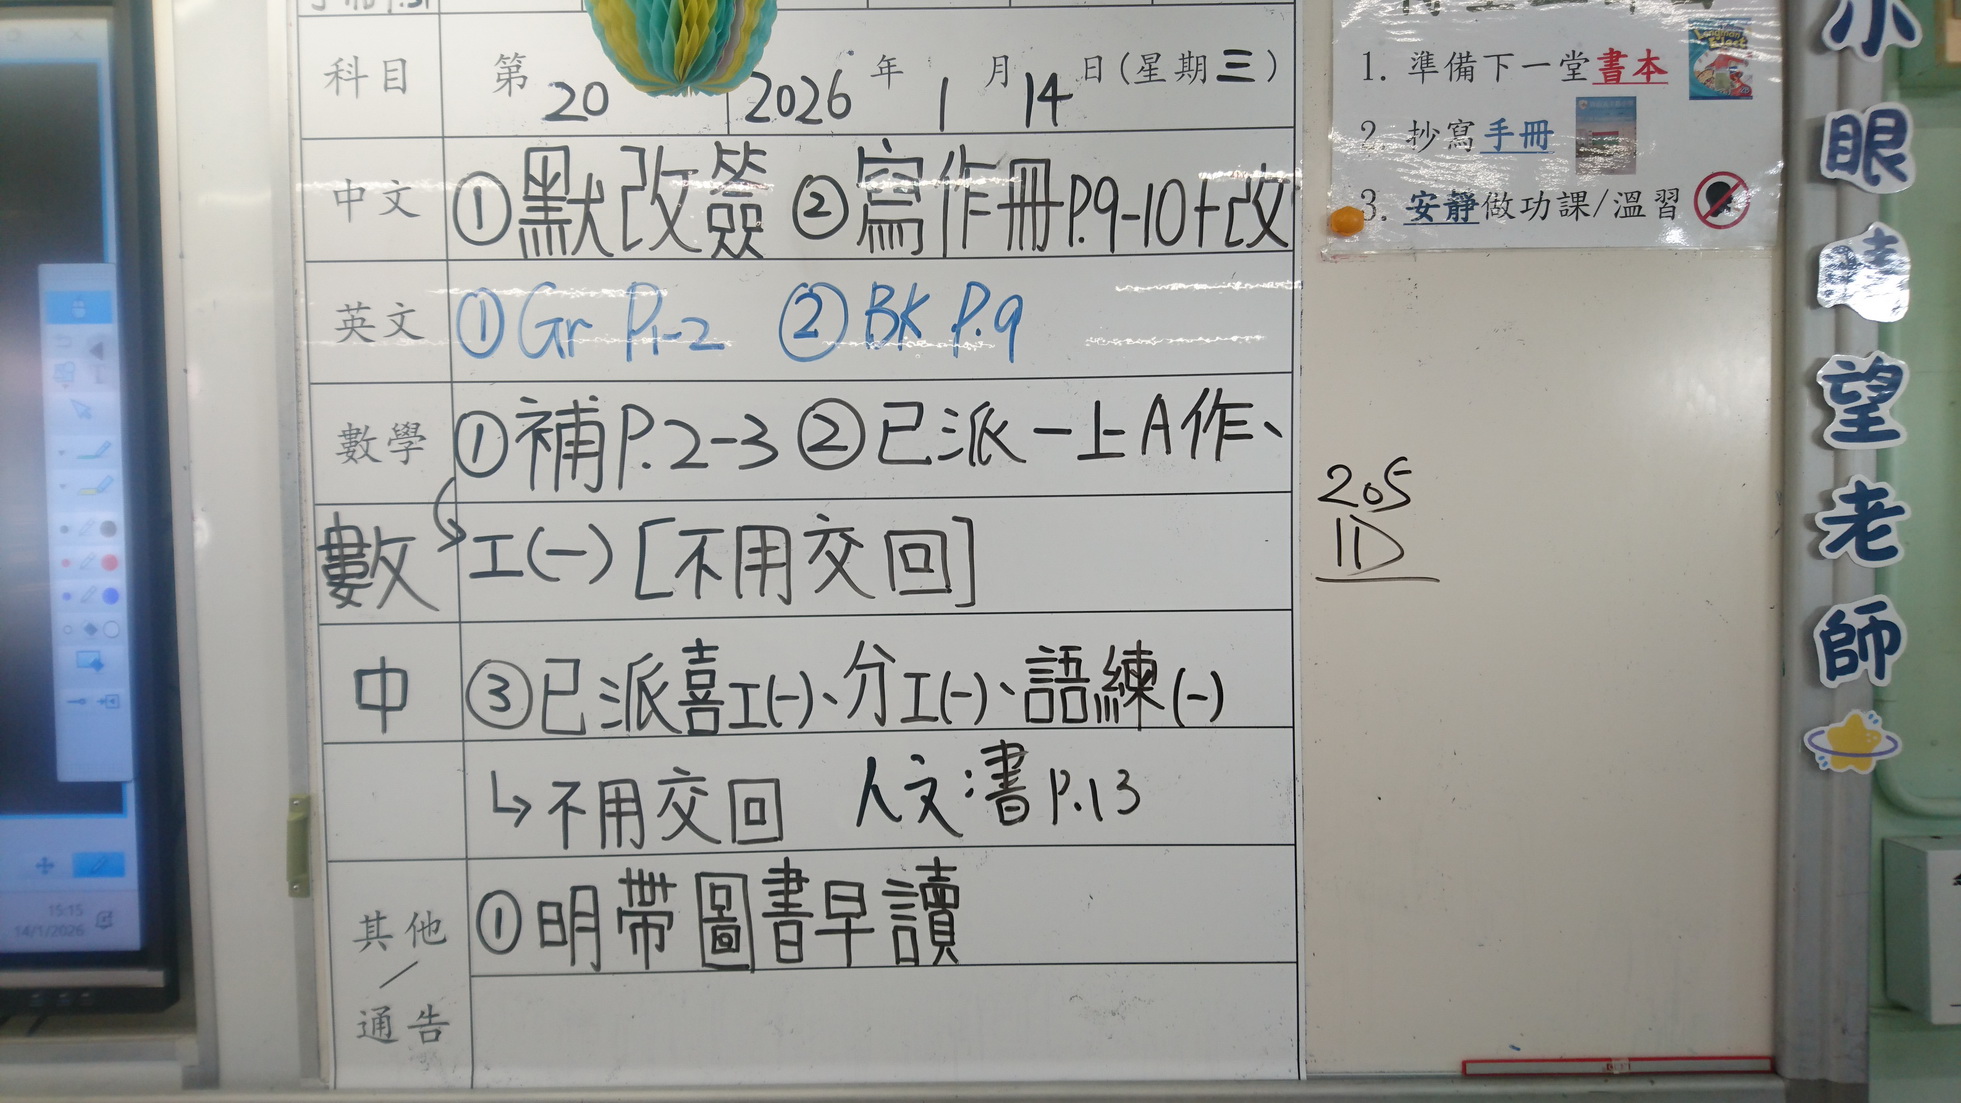 科目 第20 2026年1月14日(星期三)
中文 ①默改簽 ②寫作冊P.9-10+改
英文 ①Gr P1-2 ②BK P.9
數學 ①補P.2-3 ②已派一上A作、
數 工(一)[不用交回]
中 ③已派喜工(一)、分工(一)、語練(一)
↳不用交回 人文:書P.13
其他/通告 ①明帶圖書早讀
1. 準備下一堂書本
2. 抄寫手冊
3. 安靜做功課/溫習
205
1D
小眼睛望老師
15:15
14/1/2026